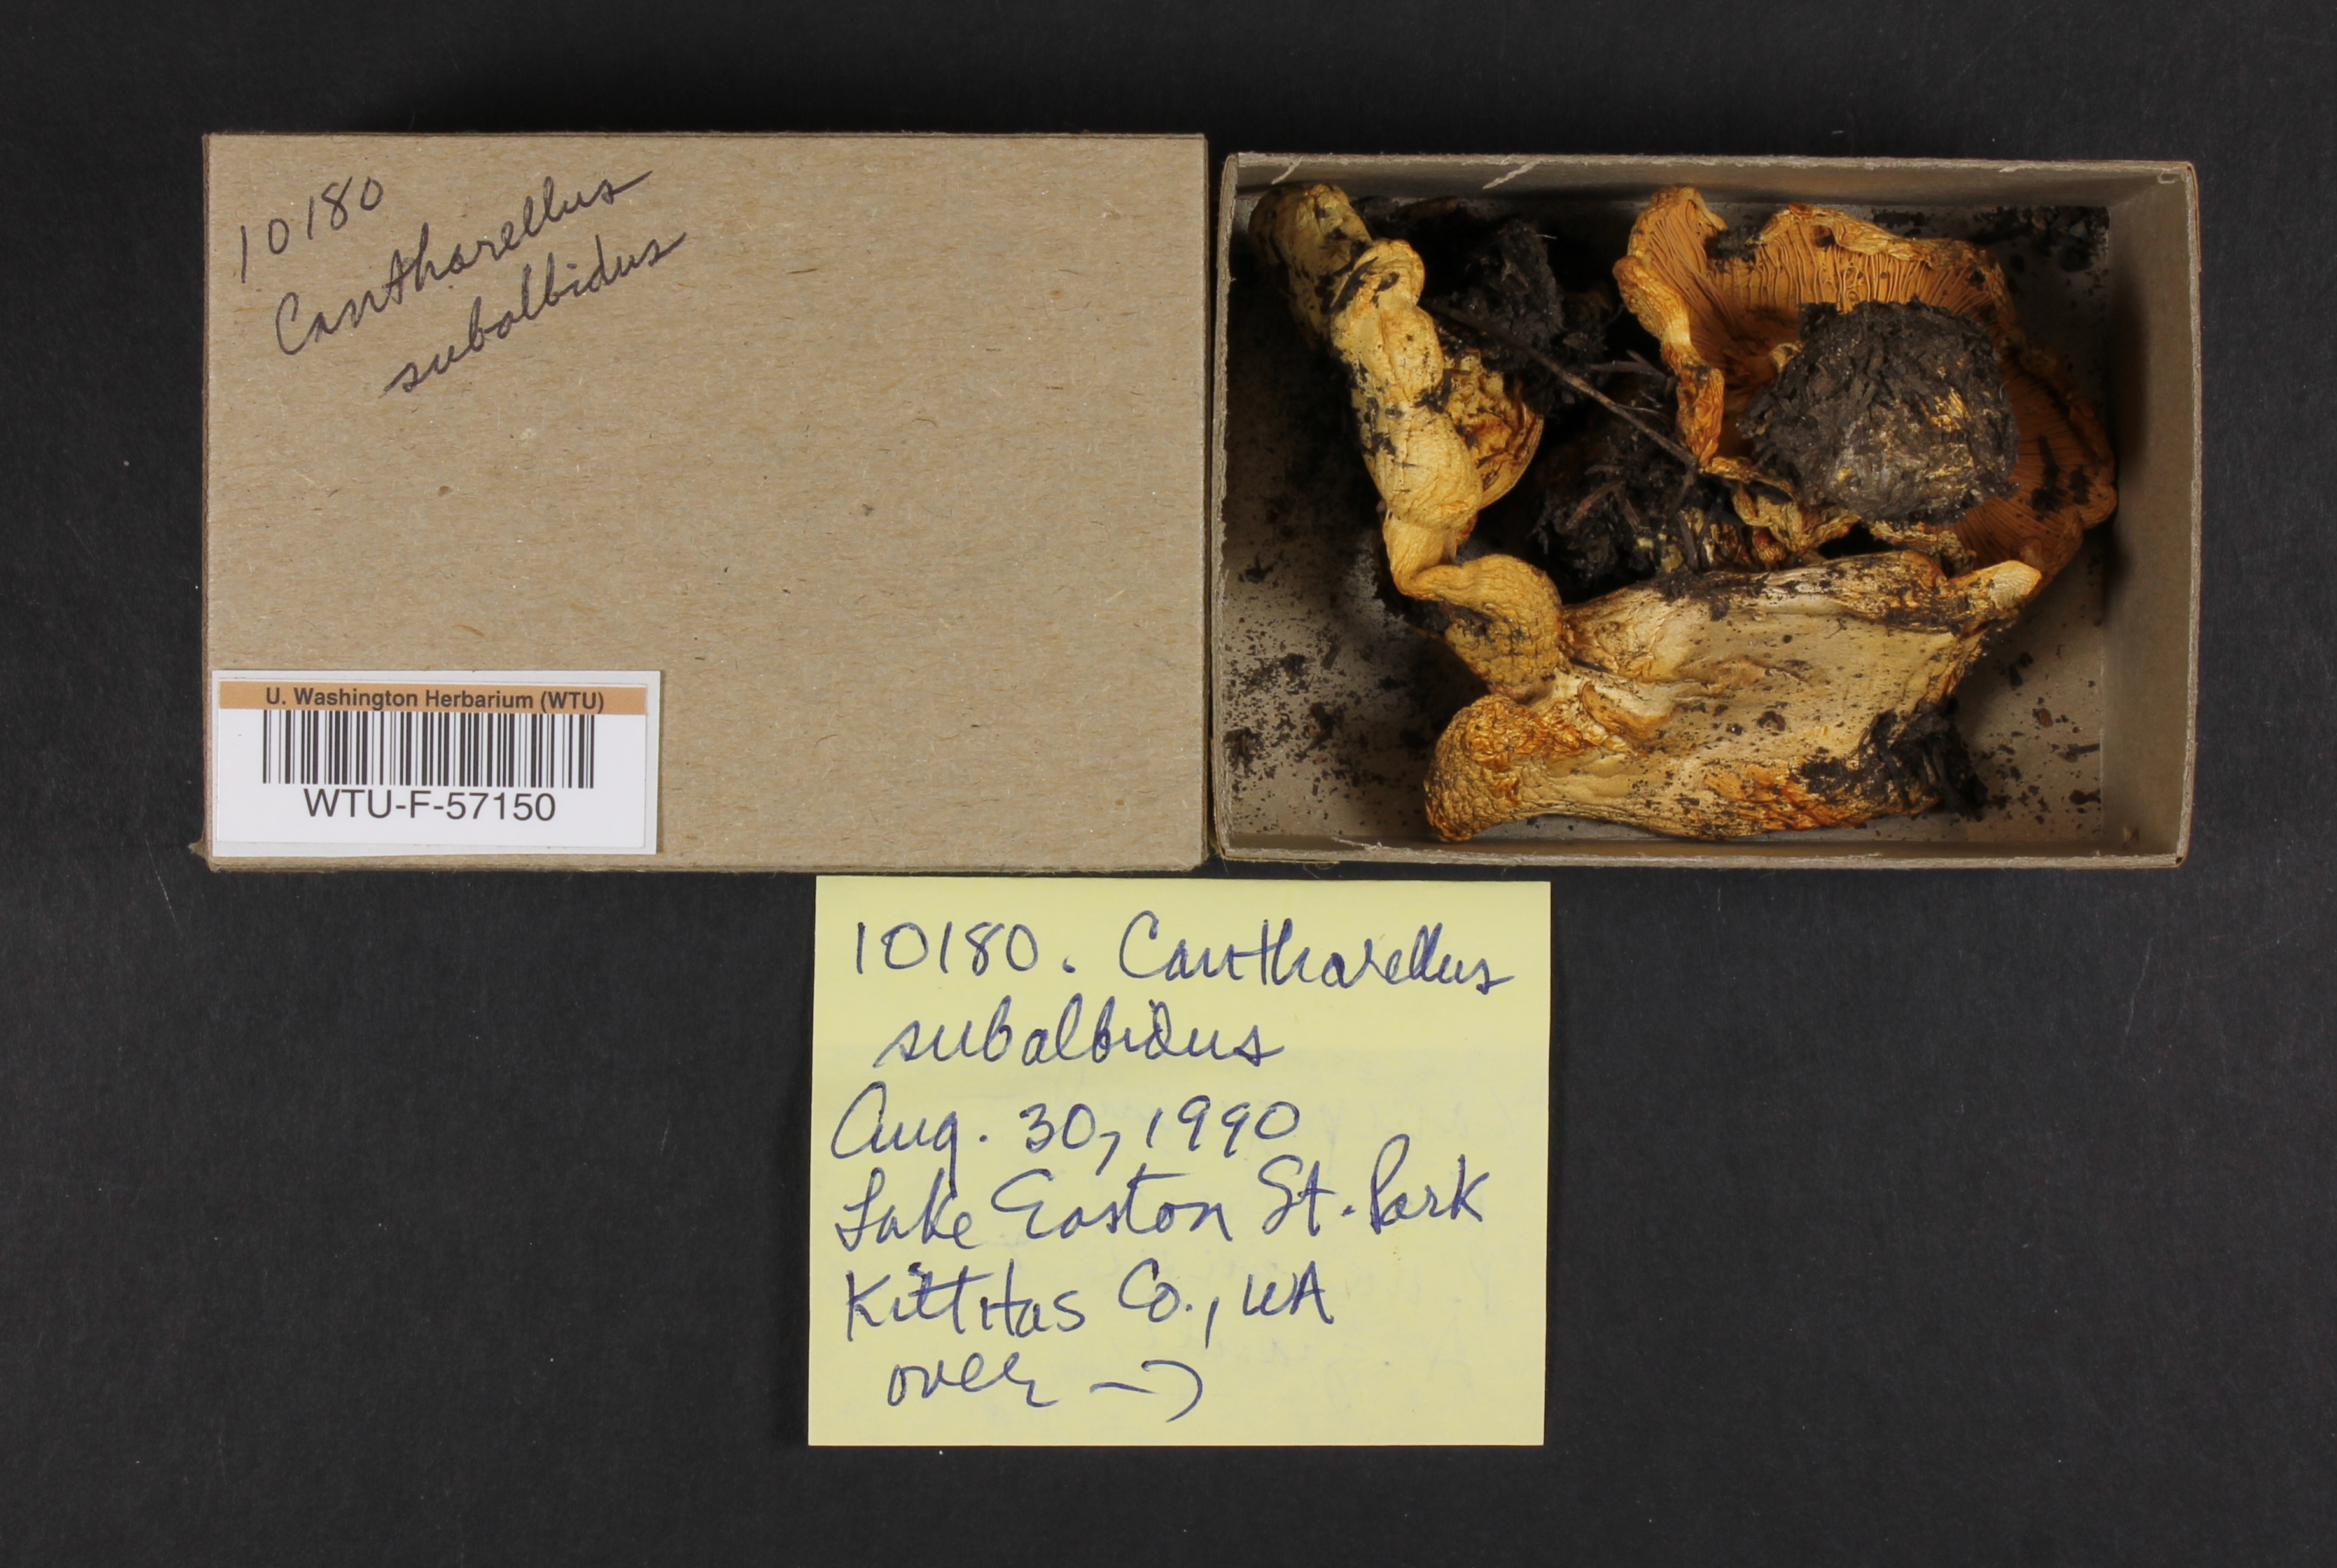 10180
Cantharellus
subalbidus
U. Washington Herbarium (WTU)
WTU-F-57150
10180. Cantharellus
subalbidus
Aug. 30, 1990
Lake Easton St. Park
Kittitas Co., WA
over →